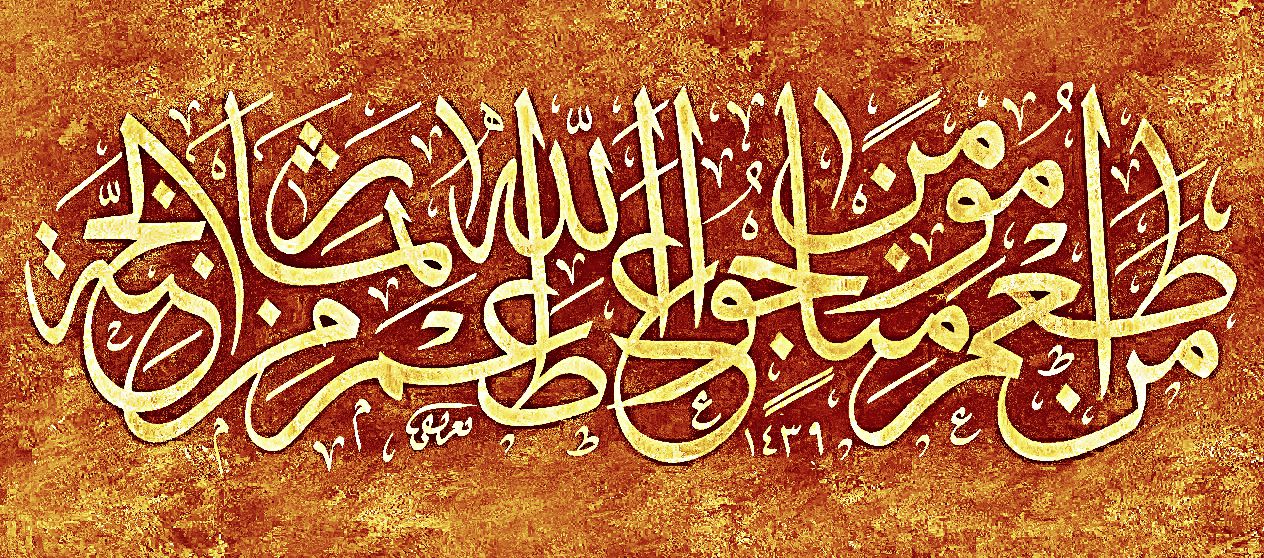 من أطعم مؤمنًا جوعٍ أطعمه الله من ثمار الجنة
١٤٣٩